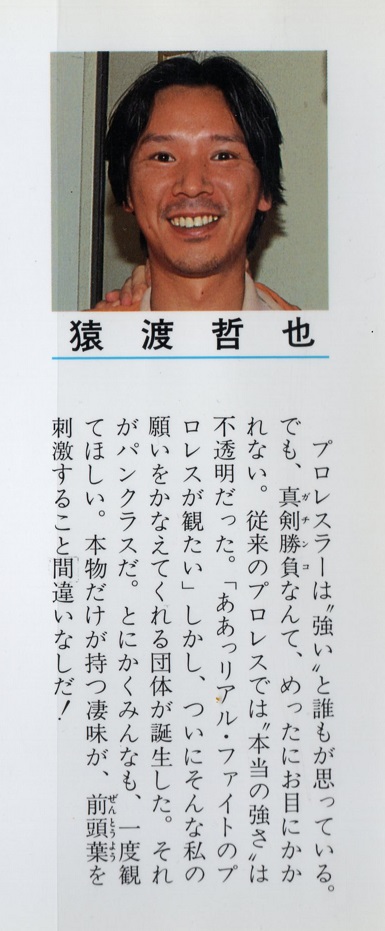 猿渡哲也
プロレスラーは〝強い〟と誰もが思っている。
でも、真剣勝負なんて、めったにお目にかか
ガチンコ
れない。従来のプロレスでは〝本当の強さ〟は
不透明だった。「ああっリアル・ファイトのプ
ロレスが観たい」しかし、ついにそんな私の
願いをかなえてくれる団体が誕生した。それ
がパンクラスだ。とにかくみんなも、一度観
てほしい。本物だけが持つ凄味が、前頭葉を
ぜんとうよう
刺激すること間違いなしだ!